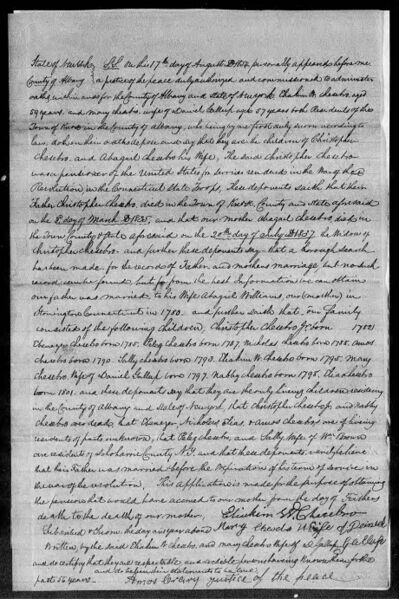 State of New York } SS. On this 17th day of August AD 1852 personally appeared before me
County of Albany } a justice of the peace duly authorized and commissioned to administer
oaths within and for the County of Albany and State of New york Elkahim W. Chesebro aged
59 years. and Mary Chesebro, wife of Daniel Gallup aged 57 years both Residents of the
Town of in the County of Albany, who being by me first duly sworn according to
law, do on their oath depose and say that they are the children of Christopher
Chesebro. and Abagail Chesebro his Wife, The said Christopher Chesebro
was a pensioner of the United States for services rendered in the War of the
Revolution in the Connecticut State Troops, These deponents saith that their
Father Christopher Chesebro, died in the Town of County and state aforesaid
on the 8 day of March AD 1835, and that our mother Abagail Chesebro, died in
the Town County & State aforesaid on the 20th day of July AD 1837. the Widow of
Christopher Chesebro. and further these deponents say that a thorough search
has been made, for the records of Father and mothers marriage, but no such
record can be found, but from the best Information we can obtain
our father was married to his Wife Abagail Williams, our (mother) in
Stonington Connecticut in 1780. and further saith that, our Family
consisted of the following children, Christopher Chesebro Jr born 1782
Ebenezer Chesebro born 1785. Peleg Chesebro born 1787, Nicholas Chesebro born 1788.
Chesebro born 1790. Sally Chesebro born 1793. W. Chesebro born 1795. Mary
Chesebro, Wife of Daniel Gallup born 1797. Nabby Chesebro born 1798.
born 1801. and these deponents say that they are the only living children residing
in the County of Albany and State of New york, that Christopher Chesebro Jr, and Nabby
Chesebro are dead, that Ebenezer, Nicholas, and Chesebro are if living
residents of parts unknown, that Peleg Chesebro, and Sally, Wife of Wm Brown
are residents of Schoharie County N.Y. and that these deponents, verily believe
that his Father was married before the Expiration of his term of service in
the war of the revolution. This application is made for the purpose of obtaining
the pension what would have accrued to our mother from the day of Fathers
death to the death of our mother. W Chesebro
Subscribed & Sworn the day and year above Mary Chesebro Wife of Daniel
Written, by the said W. Chesebro, and Mary Chesebro Wife of D. Gallup
and do certify that they are respectable and credible persons having known them for the
past 35 years and do believe their statements to be true
Amos Crary justice of the peace